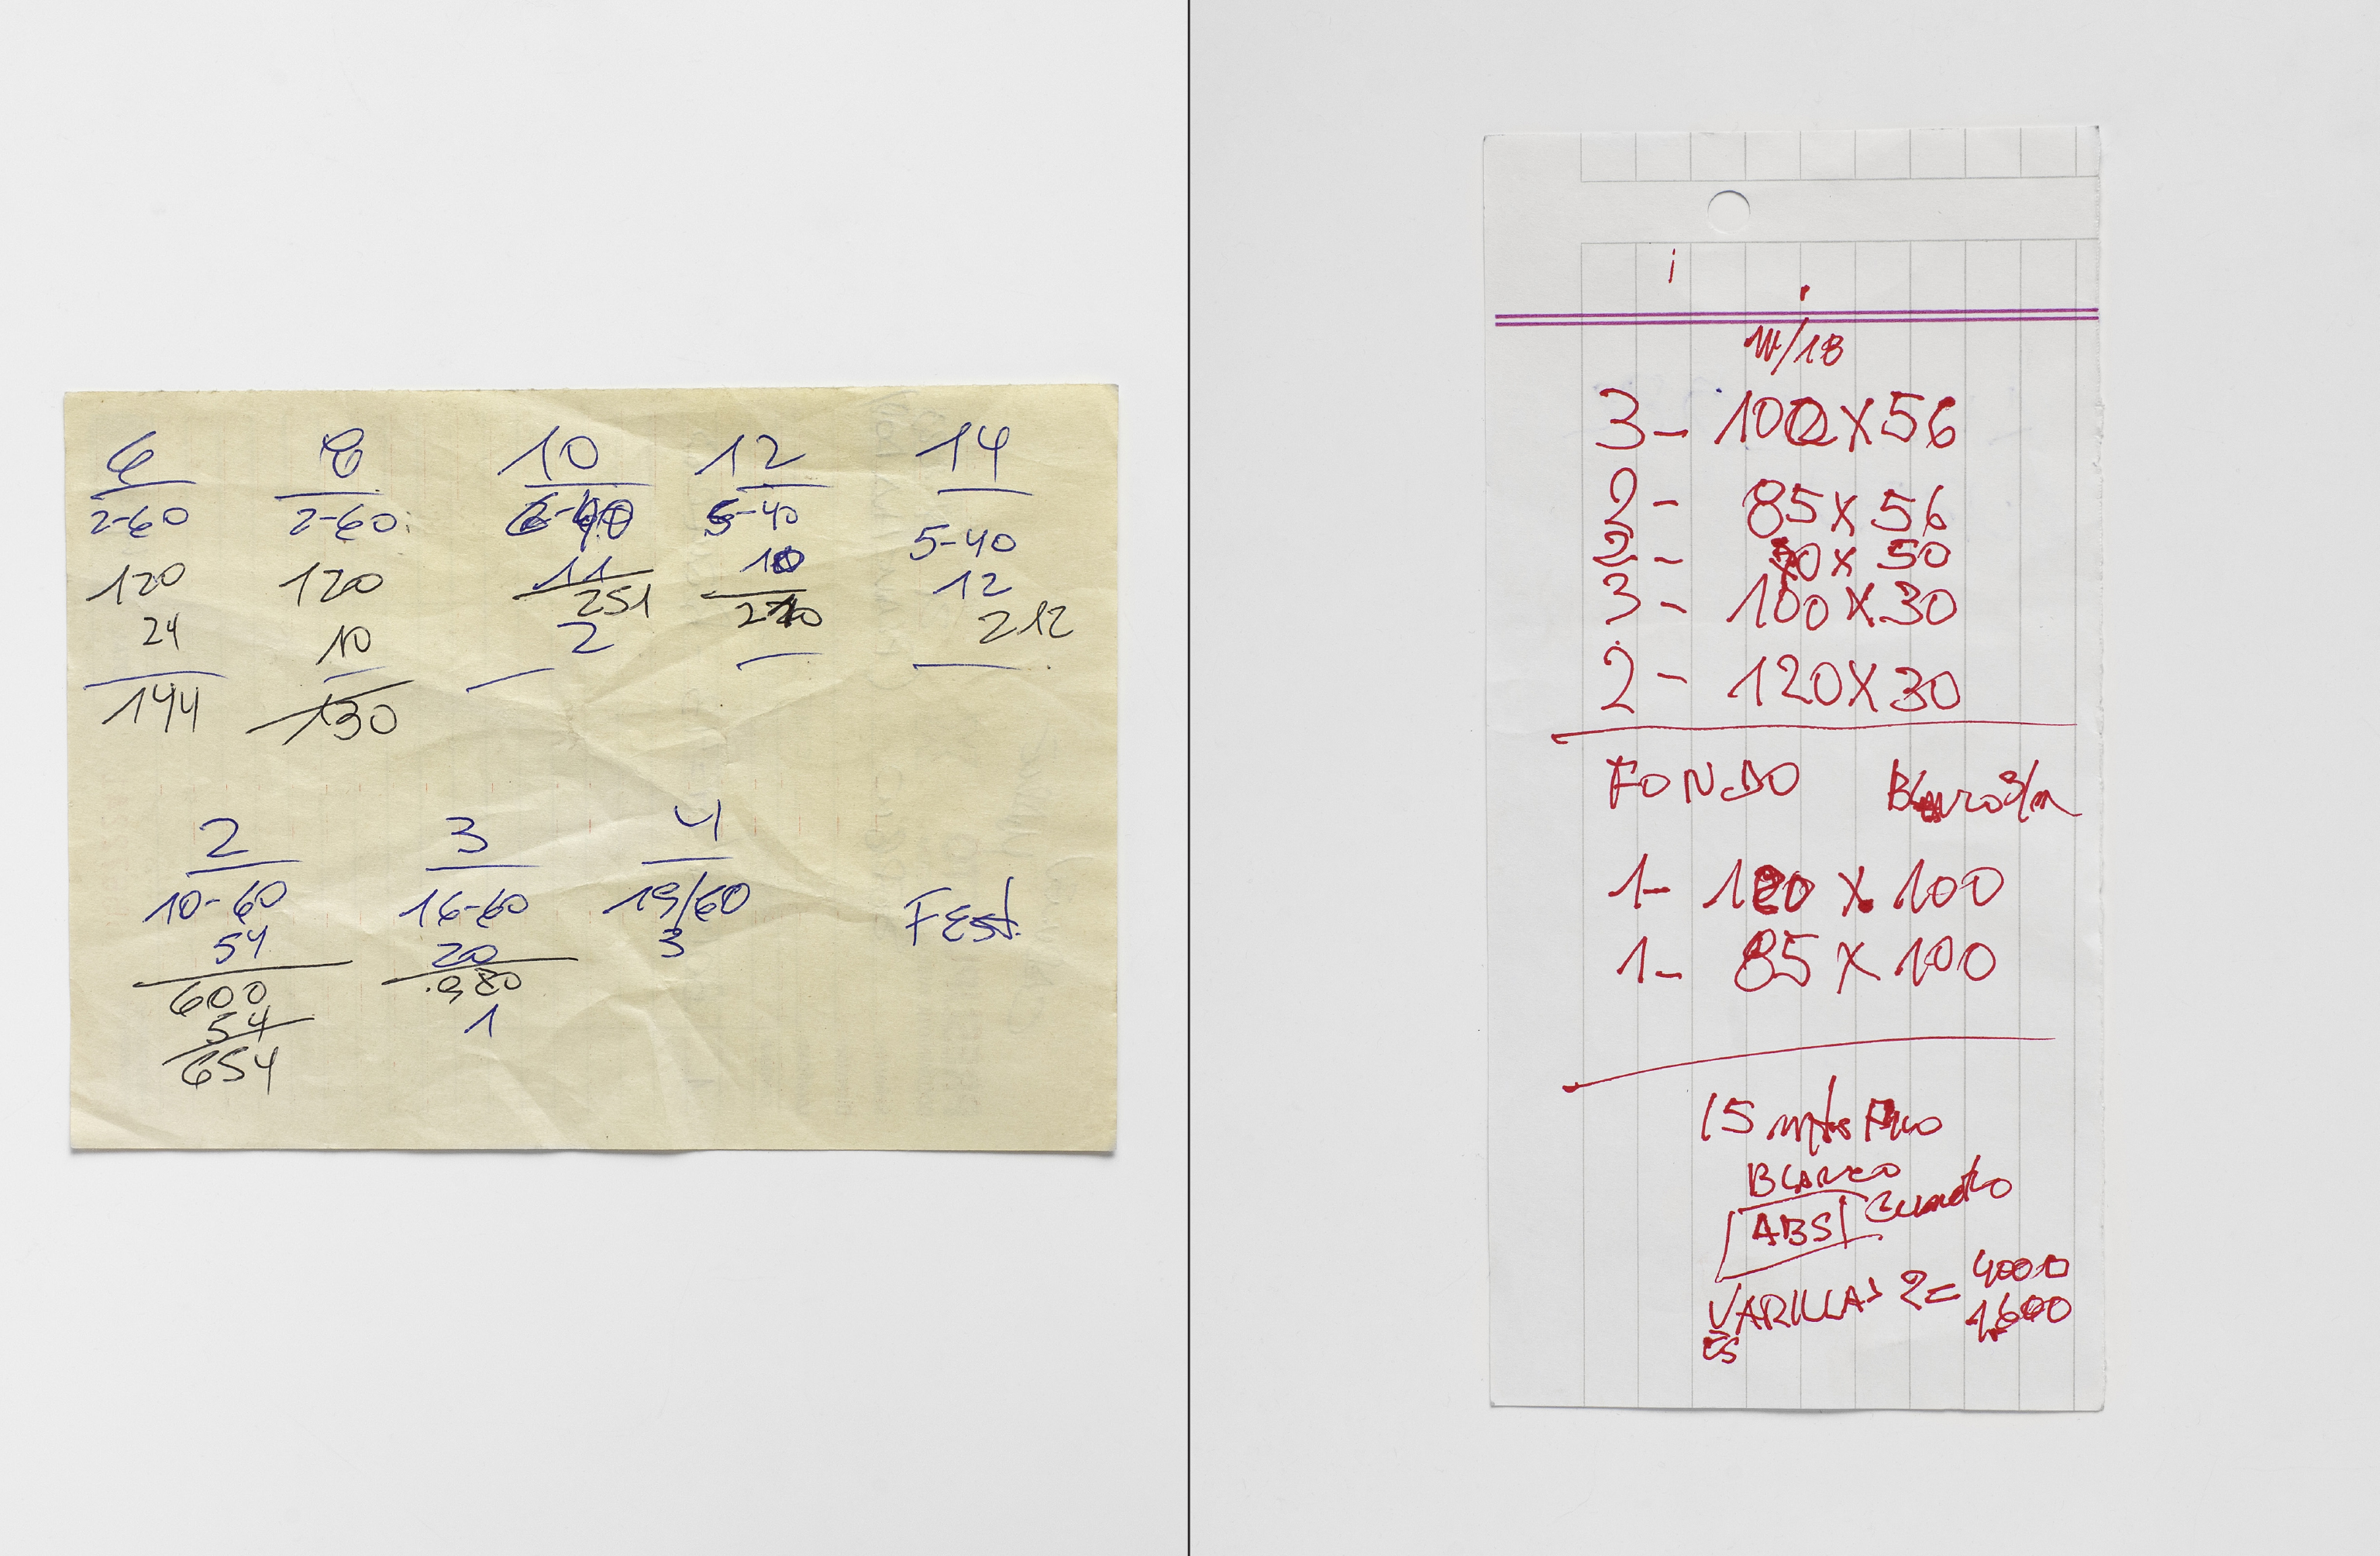 6 8 10 12 14
2-60 2-60 5-40 5-40
120 120 11 10 12
24 10 251 212
144 130 2
2 3 4
10-60 16-60 19/60 FEST.
54 20 3
600 980
54 1
654
/18
3- 100 X 56
2- 85 X 56
2- x 50
3- 100 X 30
2- 120 X 30
FONDO
1- 120 X 100
1- 85 X 100
15 mts
BLANCO
ABS
VARILLAS 2=
ES